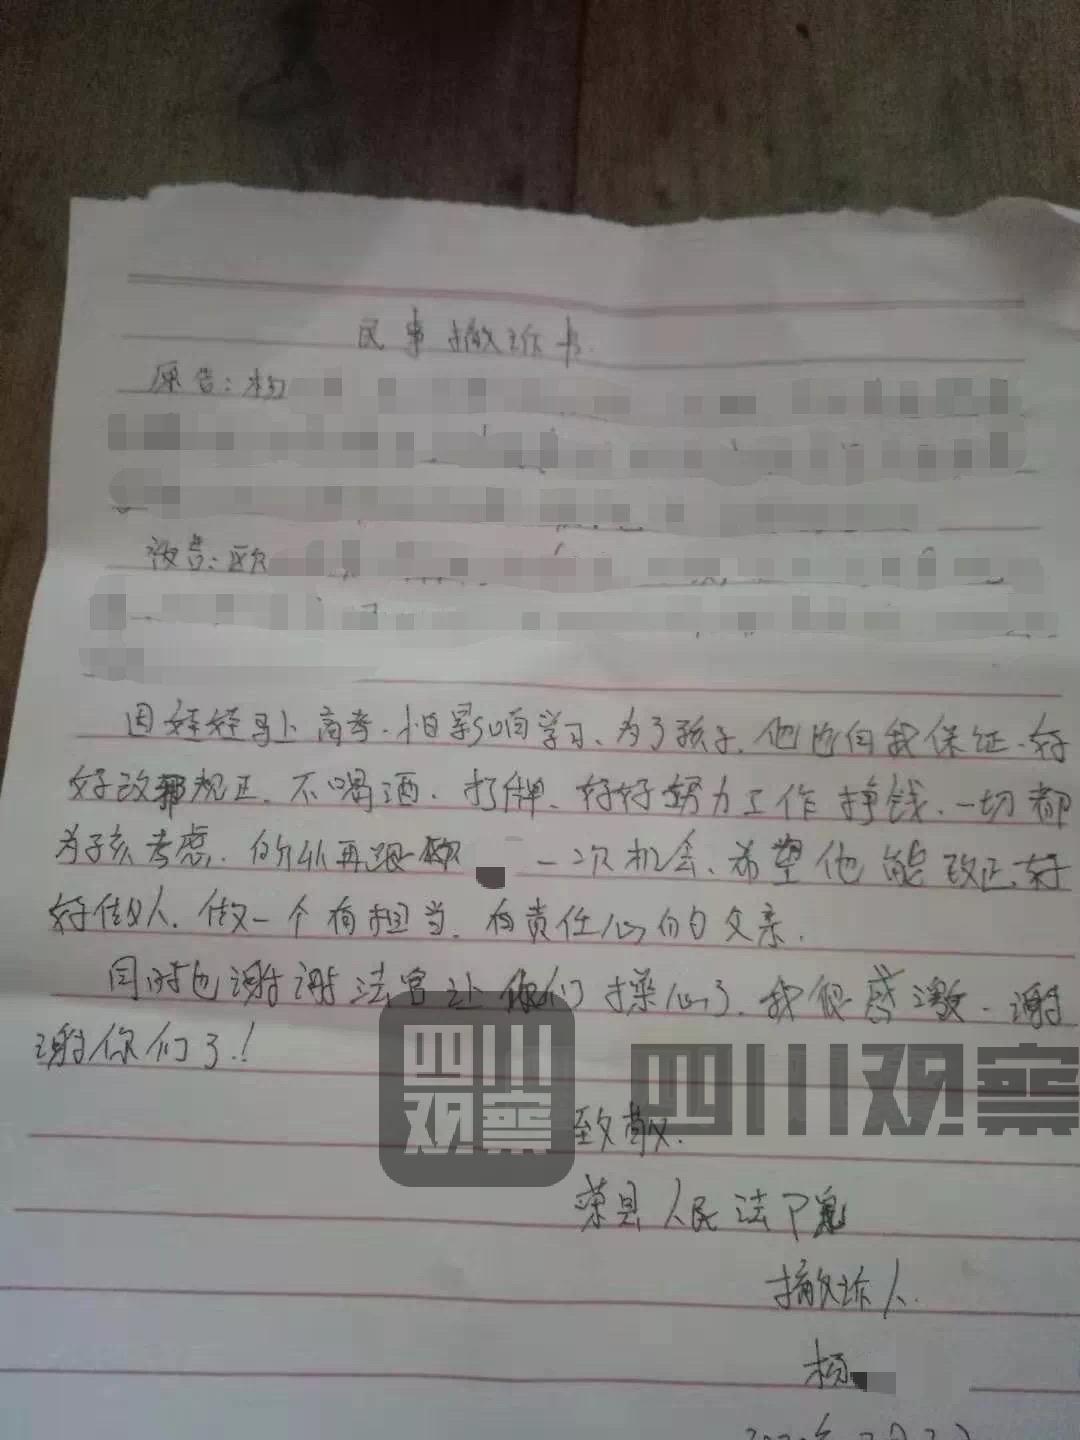 民事撤诉书.
原告:杨
被告:欧
因娃娃马上高考.怕影响学习、为了孩子.他也向我保证.好
好改邪规正.不喝酒.打牌、好好努力工作挣钱.一切都
为孩考虑.所以再跟欧 一次机会、希望他能改正.好
好做人.做一个有担当.有责任心的父亲.
同时也谢谢法官让你们操心了.我很感激.谢
谢你们了!
四川观察
四川观察
致敬.
荣县人民法院
撤诉人.
杨